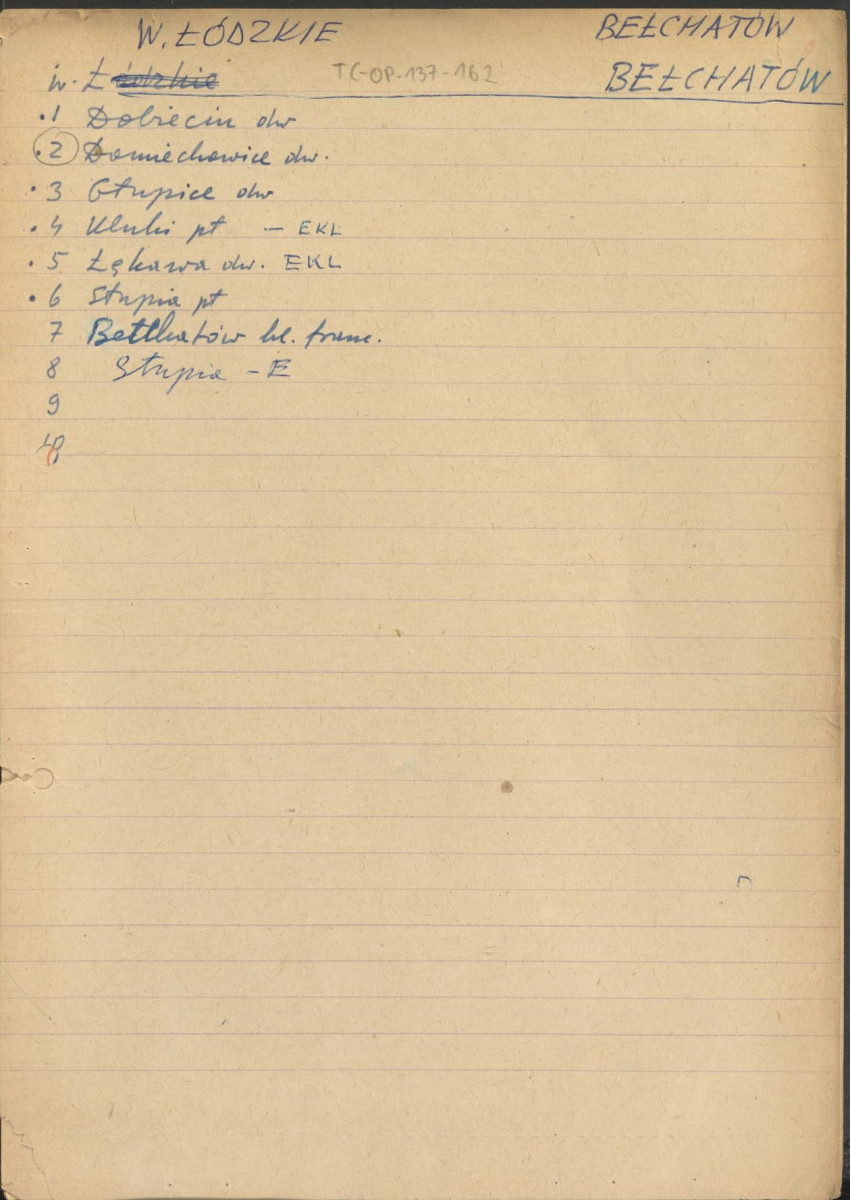 W. ŁÓDZKIE BEŁCHATÓW
w. Łódzkie TG-OP-137-162 BEŁCHATÓW
.1 Dobiecin dw
.2 Domiechowice dw.
.3 Głupice dw
.4 Kluki pt — EKL
.5 Łękawa dw. EKL
.6 Słupia pt
7 Bełchatów kl. franc.
8 Słupia - E
9
10